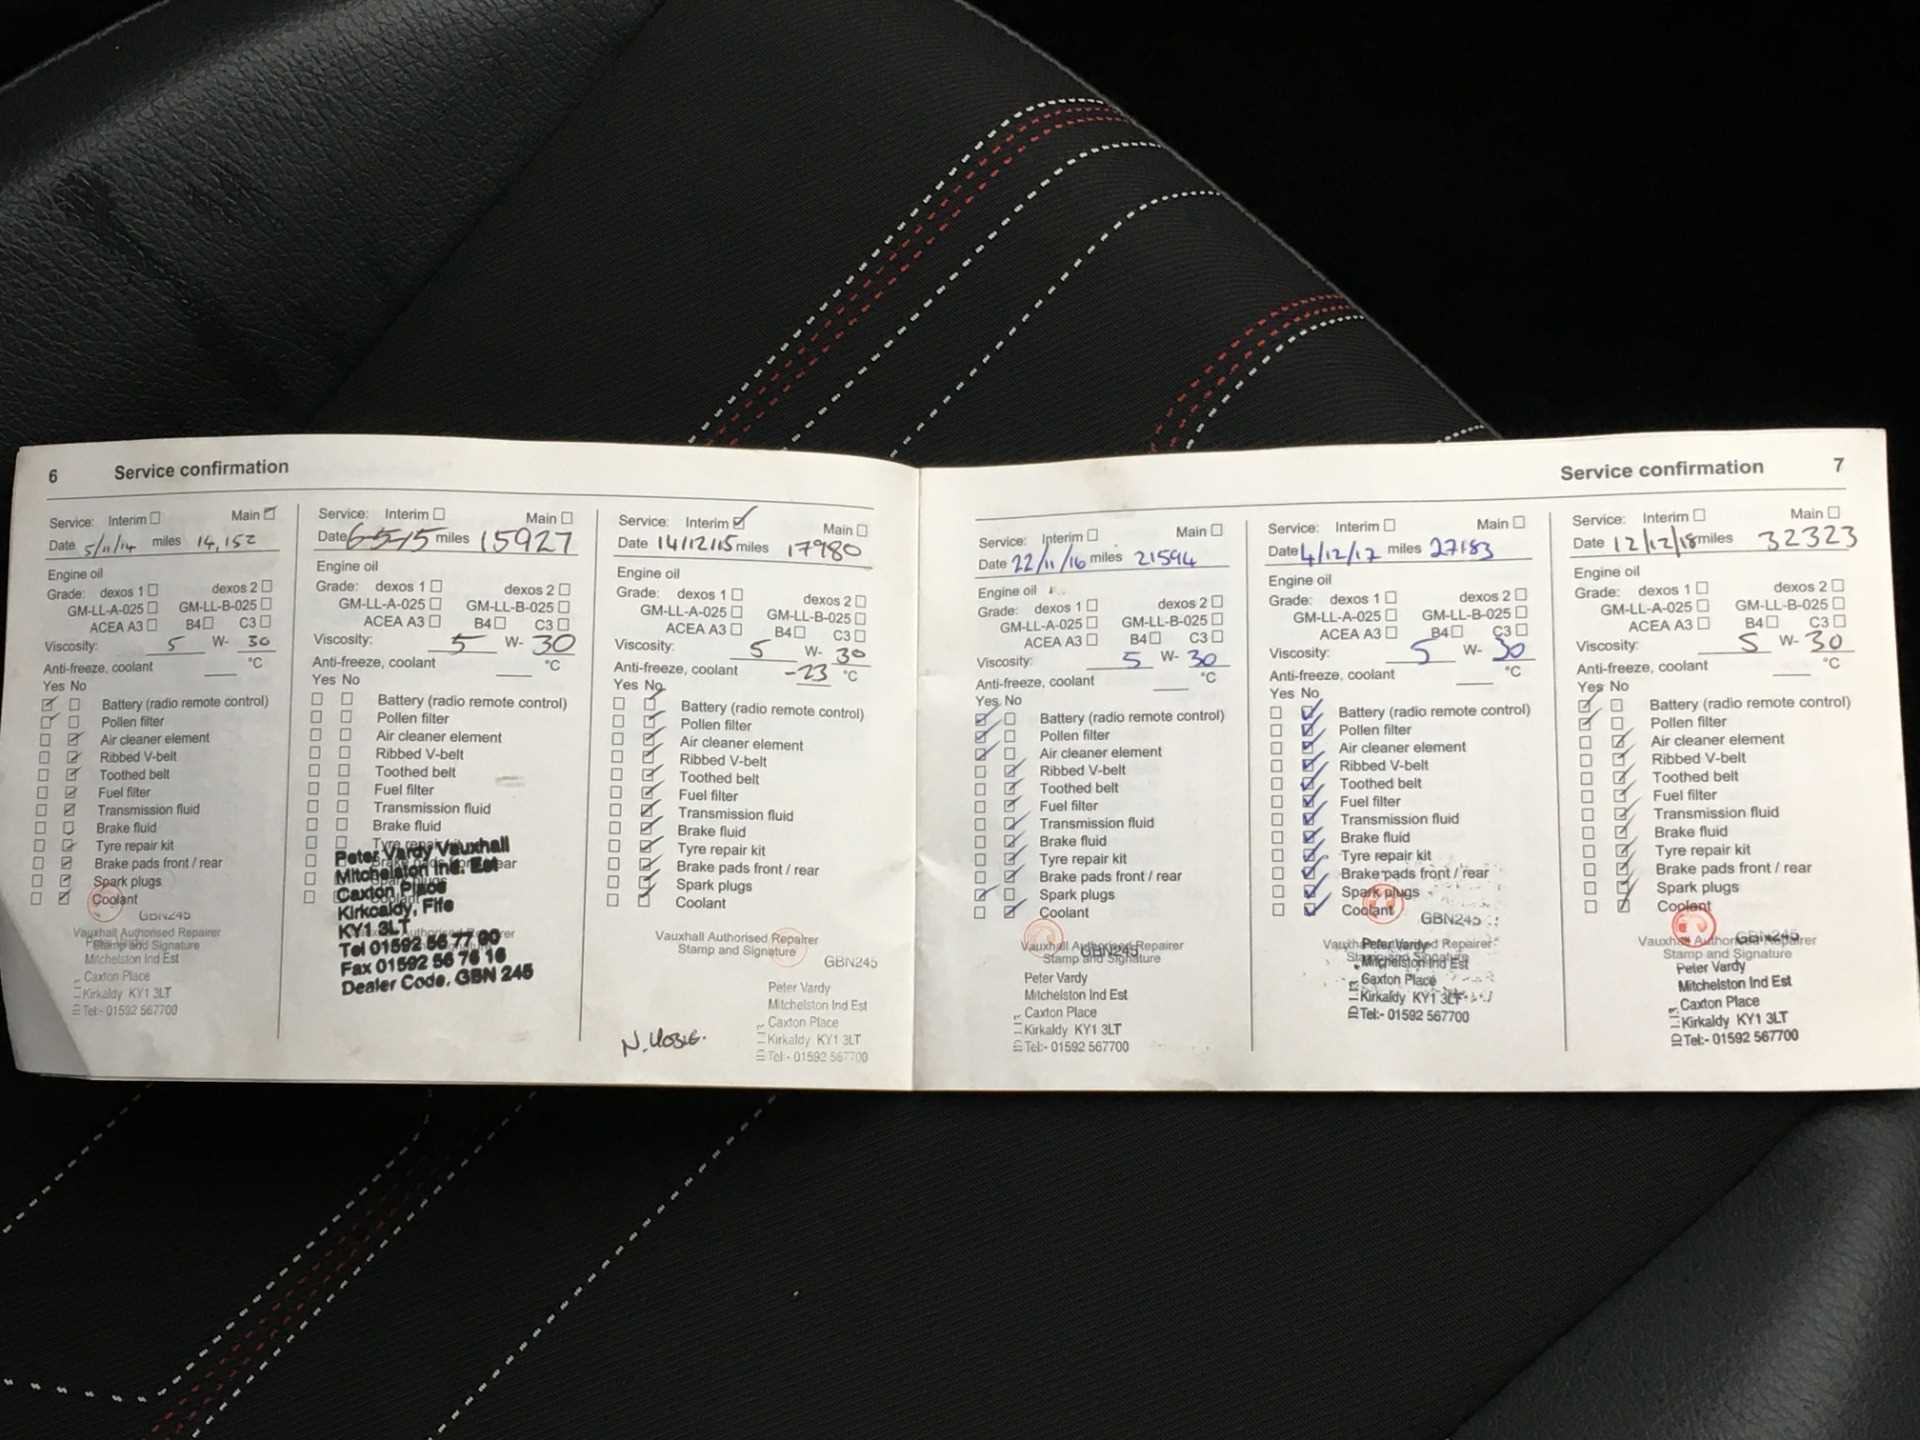 6 Service confirmation
Service: Interim Main
Date 5/11/14 miles 14,152
Engine oil
Grade: dexos 1 dexos 2
GM-LL-A-025 GM-LL-B-025
ACEA A3 B4 C3
Viscosity: 5 W- 30
Anti-freeze, coolant °C
Yes No
Battery (radio remote control)
Pollen filter
Air cleaner element
Ribbed V-belt
Toothed belt
Fuel filter
Transmission fluid
Brake fluid
Tyre repair kit
Brake pads front / rear
Spark plugs
Coolant
GBN245
Vauxhall Authorised Repairer
Stamp and Signature
Mitchelston Ind Est
Caxton Place
Kirkaldy KY1 3LT
Tel:- 01592 567700
Service: Interim Main
Date 6-5-15 miles 15927
Engine oil
Grade: dexos 1 dexos 2
GM-LL-A-025 GM-LL-B-025
ACEA A3 B4 C3
Viscosity: 5 W- 30
Anti-freeze, coolant °C
Yes No
Battery (radio remote control)
Pollen filter
Air cleaner element
Ribbed V-belt
Toothed belt
Fuel filter
Transmission fluid
Brake fluid
Tyre repair kit
Peter Vardy Vauxhall
Mitchelston Ind. Est
Caxton Place
Kirkcaldy, Fife
KY1 3LT
Tel 01592 56 77 00
Fax 01592 56 76 16
Dealer Code, GBN 245
Service: Interim Main
Date 14/12/15 miles 17980
Engine oil
Grade: dexos 1 dexos 2
GM-LL-A-025 GM-LL-B-025
ACEA A3 B4 C3
Viscosity: 5 W- 30
Anti-freeze, coolant -23 °C
Yes No
Battery (radio remote control)
Pollen filter
Air cleaner element
Ribbed V-belt
Toothed belt
Fuel filter
Transmission fluid
Brake fluid
Tyre repair kit
Brake pads front / rear
Spark plugs
Coolant
Vauxhall Authorised Repairer
Stamp and Signature
GBN245
Peter Vardy
Mitchelston Ind Est
Caxton Place
Kirkaldy KY1 3LT
Tel:- 01592 567700
Service confirmation 7
Service: Interim Main
Date 22/11/16 miles 21594
Engine oil
Grade: dexos 1 dexos 2
GM-LL-A-025 GM-LL-B-025
ACEA A3 B4 C3
Viscosity: 5 W- 30
Anti-freeze, coolant °C
Yes No
Battery (radio remote control)
Pollen filter
Air cleaner element
Ribbed V-belt
Toothed belt
Fuel filter
Transmission fluid
Brake fluid
Tyre repair kit
Brake pads front / rear
Spark plugs
Coolant
Vauxhall Authorised Repairer
GBN245
Stamp and Signature
Peter Vardy
Mitchelston Ind Est
Caxton Place
Kirkaldy KY1 3LT
Tel:- 01592 567700
Service: Interim Main
Date 4/12/17 miles 27183
Engine oil
Grade: dexos 1 dexos 2
GM-LL-A-025 GM-LL-B-025
ACEA A3 B4 C3
Viscosity: 5 W- 30
Anti-freeze, coolant °C
Yes No
Battery (radio remote control)
Pollen filter
Air cleaner element
Ribbed V-belt
Toothed belt
Fuel filter
Transmission fluid
Brake fluid
Tyre repair kit
Brake pads front / rear
Spark plugs
Coolant
GBN245
Peter Vardy
Mitchelston Ind Est
Caxton Place
Kirkaldy KY1 3LT
Tel:- 01592 567700
Service: Interim Main
Date 12/12/18 miles 32323
Engine oil
Grade: dexos 1 dexos 2
GM-LL-A-025 GM-LL-B-025
ACEA A3 B4 C3
Viscosity: 5 W- 30
Anti-freeze, coolant °C
Yes No
Battery (radio remote control)
Pollen filter
Air cleaner element
Ribbed V-belt
Toothed belt
Fuel filter
Transmission fluid
Brake fluid
Tyre repair kit
Brake pads front / rear
Spark plugs
Coolant
GBN245
Vauxhall Authorised Repairer
Stamp and Signature
Peter Vardy
Mitchelston Ind Est
Caxton Place
Kirkaldy KY1 3LT
Tel:- 01592 567700